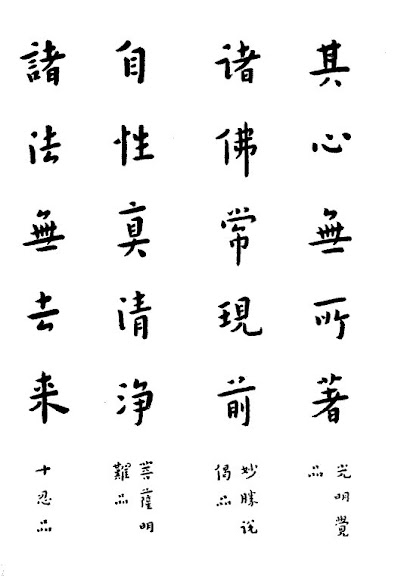 其心無所著
光明覺
品
诸佛常現前
妙勝说
偈品
自性真清浄
菩薩明
難品
諸法無去来
十忍品